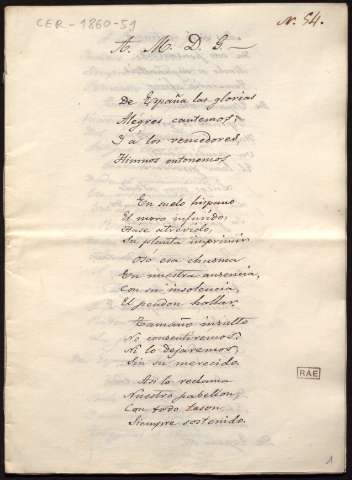 CER-1860-51
N. 54.
A. M. D. G.
De España las glorias
Alegres cantemos,
Y á los vencedores
Himnos entonemos
En suelo hispano
El moro infundido,
Hase atrevido,
Su planta imprimir.
Osó esa chusma
En nuestra ausencia,
Con su insolencia,
El pendon hollar.
Tamaño insulto
No consentiremos,
Ni lo dejaremos,
Sin su merecido.
Asi lo reclama
Nuestro pabellon,
Con todo
Siempre sostenido.
RAE
1